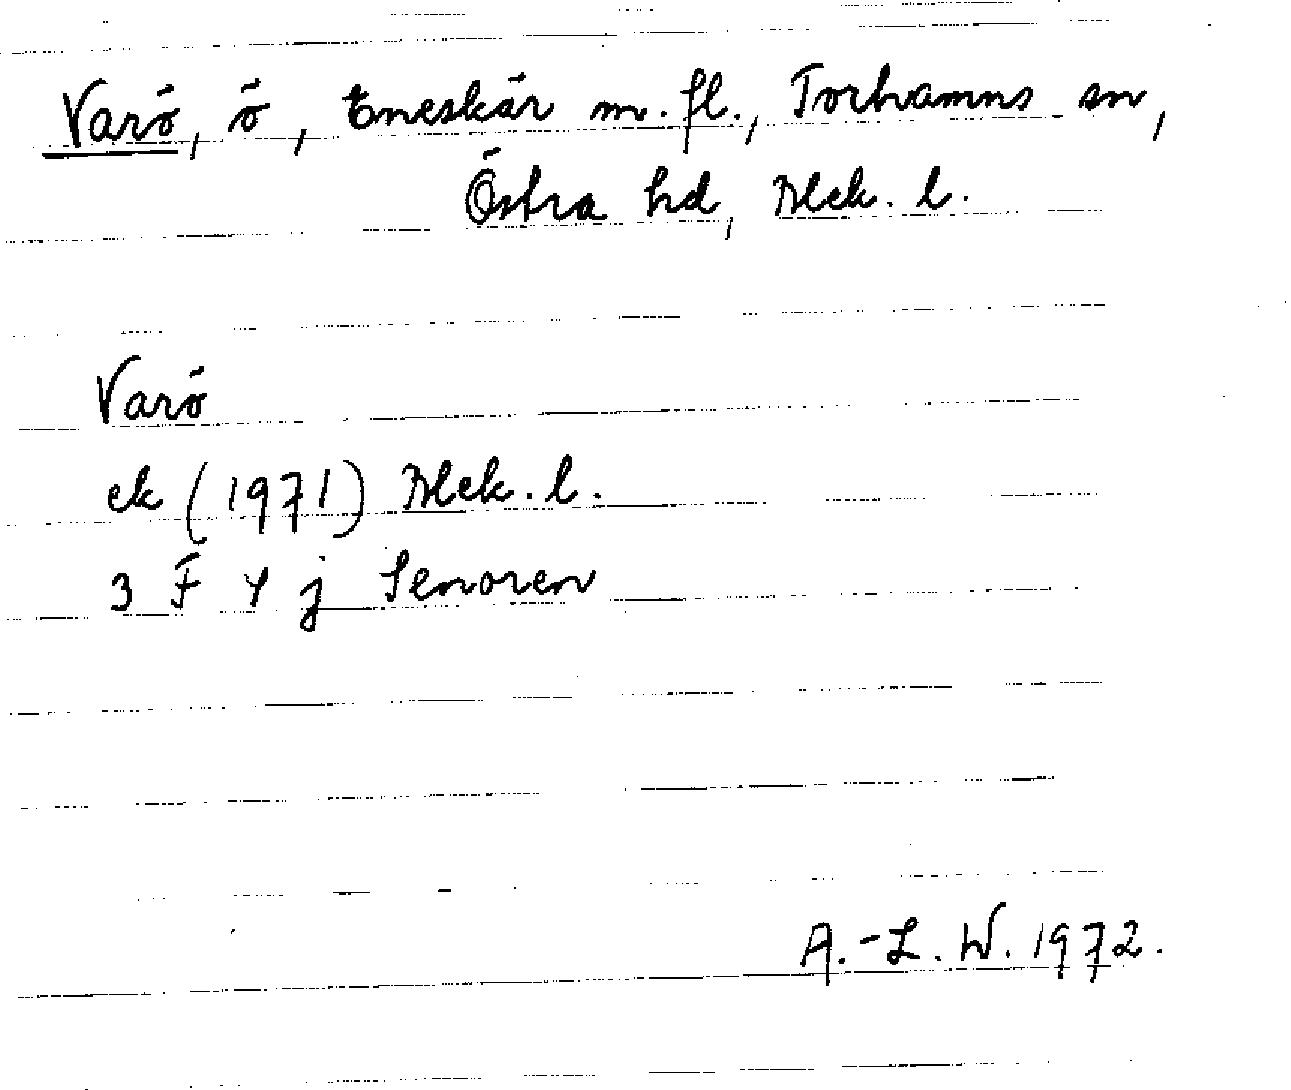 Varö, ö, Eneskär m. fl., Torhamns sn,
Östra hd, Blek. l.
Varö
ek (1971) Blek. l.
3 F 4 j Senoren
A.-L. W. 1972.